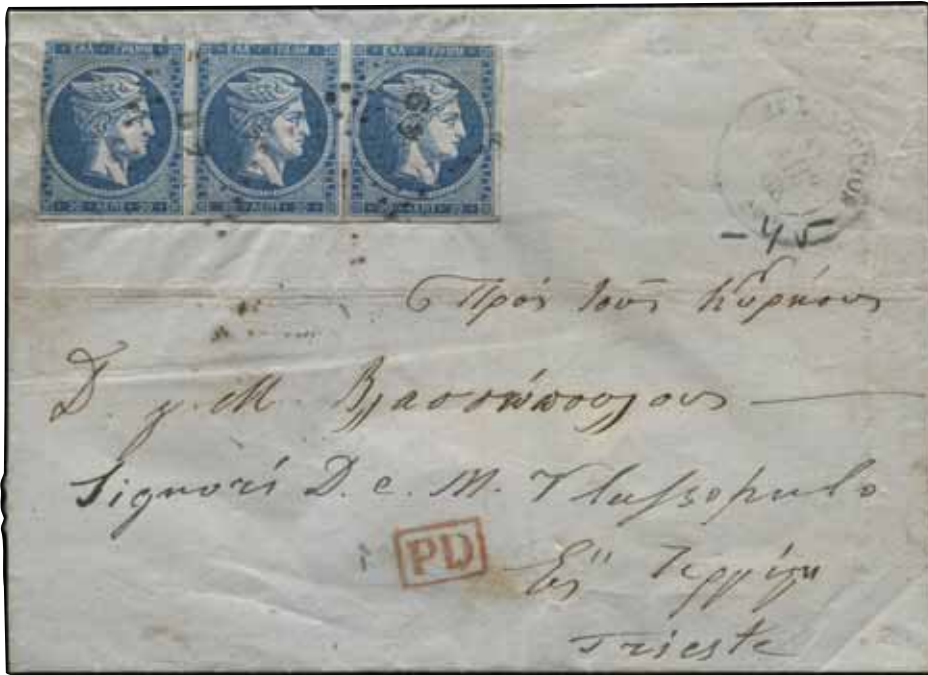 ΕΛΛ. ΓΡΑΜΜ. ΕΛΛ. ΓΡΑΜΜ. ΕΛΛ. ΓΡΑΜΜ.
20 ΛΕΠΤ. 20 20 ΛΕΠΤ. 20 20 ΛΕΠΤ. 20
-45
Πρὸς τοὺς Κυρίους
D. γ. Μ. Βλασσόπουλους
Signori D. e. M. Vlassopulo
PD
Εἰς Τεργέστη
Trieste